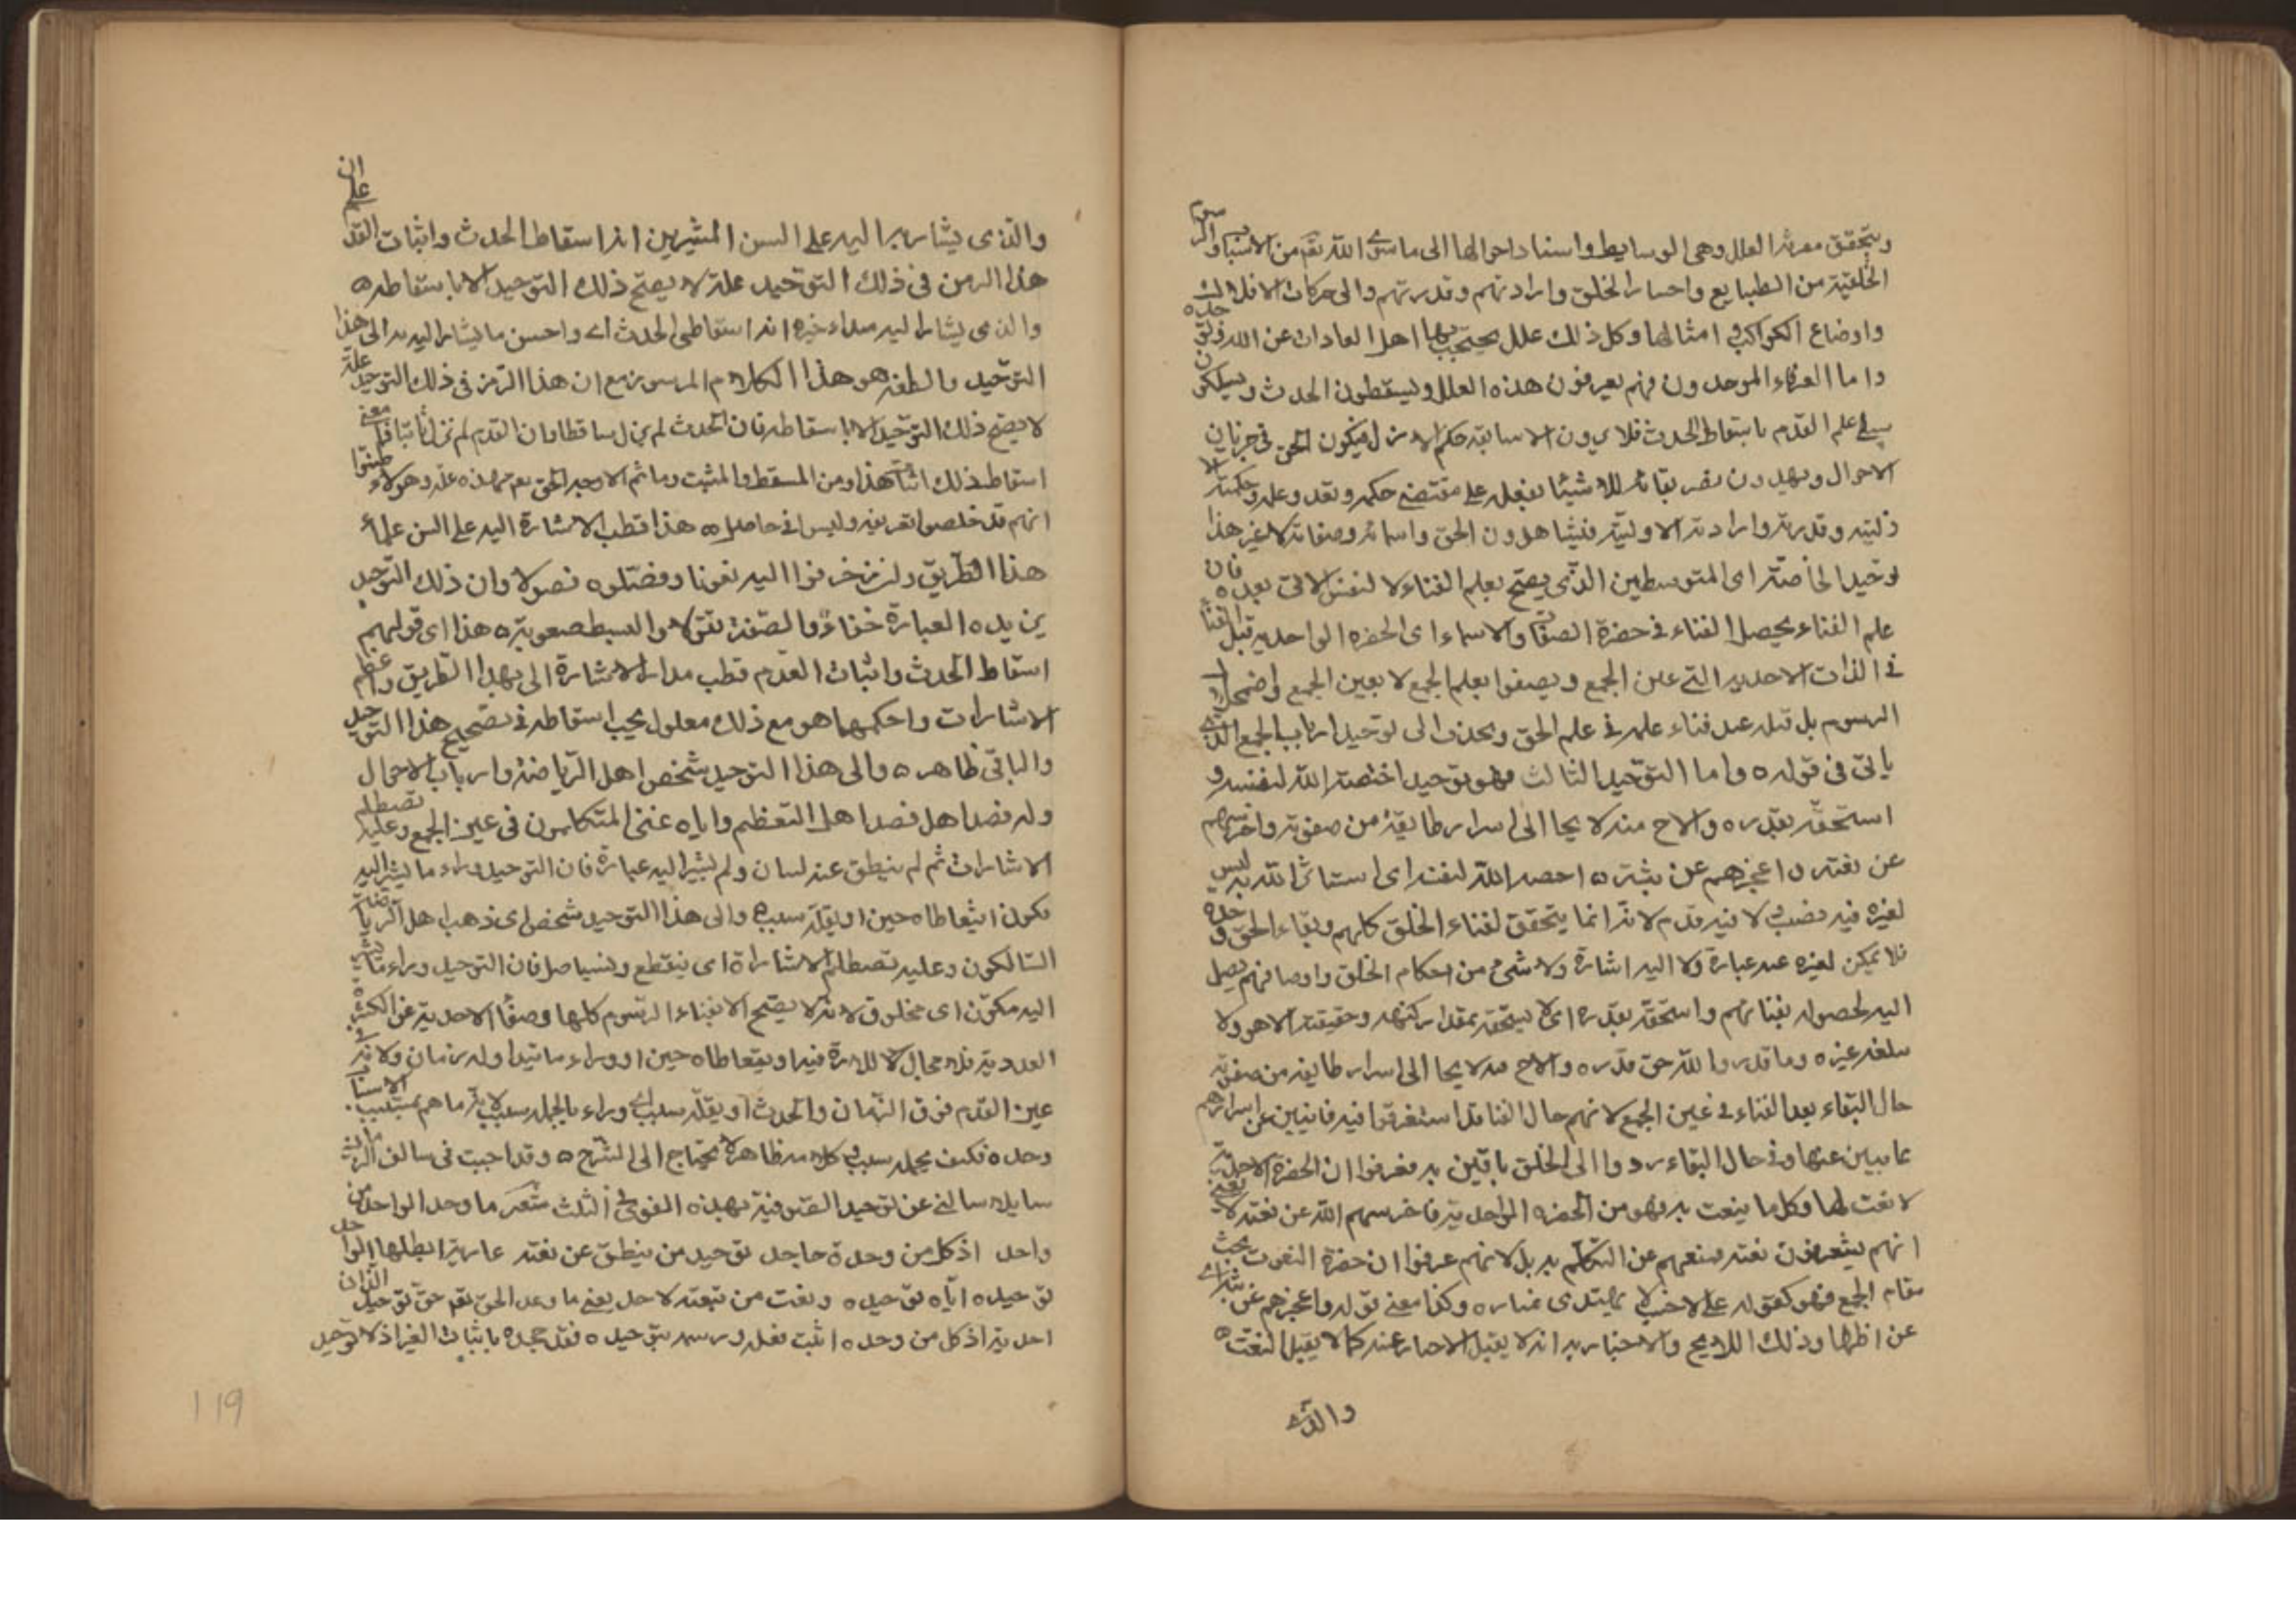 ويتحقق معرفة العلل وهى الوسايط واسناد احوالها الى ما سوى الله تقم من الاسباب والرسوم
الخلقية من الطبايع واحسار الخلق وارادتهم وقدرتهم والى حركات الافلاك
واوضاع الكواكب وامثالها وكل ذلك علل يحتجب بها اهل العادات عن الله وتو حده
واما العرفاء الموحدون فهم يعرفون هذه العلل ويسقطون الحدث ويسلكون
سبيل علم القدم باسقاط الحدث فلا يرون الا سابقة حكم الازل فيكون الحق في جريان
الاحوال ويهدون تصريفاته للاشيئا بفعله على مقتضى حكمه وتقد وعلمه وحكمته الا
زليته وقدرته وارادته الاوليته فيشاهدون الحق واسمائه وصفاته لاغير هذا
توحيد الخاصة اى المتوسطين الذى يصح بعلم الفناء لا لنفس الاتى بعده فان
علم الفناء يحصل الفناء فى حضرة الصفات والاسماء اى الحضره الواحديه قبل الفنا
فى الذات الاحديه التى عين الجمع ويصفوا بعلم الجمع لا بعين الجمع واضمحلال
الرسوم بل قبله عند فناء علمه فى علم الحق ويجذب الى توحيد ارباب الجمع الذى
ياتى فى قوله ه واما التوحيد الثالث فهو توحيد اختصه الله لنفسه و
استحقه بقدره والاح منه لايحا الى اسرار طايفة من صفوته واخرسهم
عن نعته واعجزهم عن بثه ه احصه الله لنفسه اى استاثر الله به ليس
لغيره فيه نصيب ولا فيه قدم لانه انما يتحقق لفناء الخلق كلهم وبقاء الحق وحده
فلا يمكن لغيره عنه عبارة ولا اليه اشارة ولا شئ من احكام الخلق واوصافهم يصل
اليه لحصوله بفنائهم واستحقه بقدره اى لا يستحقه بمقدار كنهه وحقيقته الا هو ولا
سلغه غيره وما قدروا الله حق قدره والاح منه لايحا الى اسرار طايفه من صفوته
حال البقاء بعد الفناء فى عين الجمع لانهم حال الفنا قد استغرقوا فيه فانيين عن اسرارهم
غايبين عنها وفى حال البقاء ردوا الى الخلق باقين به فعرفوا ان الحضرة الاحدية
لا نعت لها وكل ما ينعت به فهو من الحضره الواحدية فاخرسهم الله عن نعته لا بمعنى
انهم يعرفون نعته فمنعهم عن التكلم به بل لانهم عرفوا ان حضرة النعوت تحت
مقام الجمع فهو كقوله على لاحب لا يهتدى بمناره وكذا معنى قوله واعجزهم عن بثه اى
عن اظهارها وذلك اللايح والاخبار به انه لا يقبل الاخبار عنه كما لا يقبل النعت ه
والذى
والذى يشار به اليه على السن المشيرين انه اسقاط الحدث واثبات القدم على ان
هذا الرمز فى ذلك التوحيد علة لا يصح ذلك التوحيد الا باسقاطه ه
والذى يشار اليه مبتداء خبره انه اسقاط الحدث اى واحسن ما يشار اليه به الى هذا
التوحيد والطفه هو هذا الكلام المرموز مع ان هذا الرمز فى ذلك التوحيد علة
لا يصح ذلك التوحيد الا باسقاطه فان الحدث لم يزل ساقطا وان القدم لم يزل ثابتا فما معنى
اسقاط ذلك اثبات هذا ومن المسقط والمثبت وما ثم الا وجه الحق تعم فهذه علة وهولاء ظنوا
انهم قد خلصوا تعريفه وليس فى حاصله ه هذا قطب الاشارة اليه على السن علماء
هذا الطريق وان زخرفوا اليه نعوتا وفصلوه فصولا وان ذلك التوحيد
يزيده العبارة خفاءً والصفة نفورا والبسط صعوبة ه هذا اى قولهم
اسقاط الحدث واثبات القدم قطب مدار الاشارة الى بهذا الطريق واعظم
الاشارات واحكمها هو مع ذلك معلول يجب اسقاطه فى تصحيح هذا التوحيد
والباقى ظاهر ه والى هذا التوحيد شخص اهل الرياضة وارباب الاحوال
وله قصد اهل التعظيم واياه عنى المتكلمون فى عين الجمع وعليه تصطلم
الاشارات ثم لم ينطق عنه لسان ولم يشير اليه عبارة فان التوحيد وراء ما يشير اليه
مكون او يتعاطاه حين او يقله سبب ه والى هذا التوحيد شخص اى ذهب اهل الرياضة
السالكون وعليه تصطلم الاشاراة اى ينقطع ويستاصل فان التوحيد وراء ما يشير
اليه مكوّن اى مخلوق لانه لا يصح الا بفناء الرسوم كلها وصفاً الاحدية عن الكثرة
العددية فلا مجال للاشارة فيه او يتعاطاه حين او وراء ما يتداوله زمان ولانه فى
عين القدم فوق الزمان والحدث او يقله سبب اى وراء ما يحمله سبب لانه ما هم مسبب الاسباب
وحده فكيف يحمله سبب وكلامه ظاهر لا يحتاج الى الشرح ه وقد اجبت فى سالف الزمان
سايلا سالنى عن توحيد الصوفية بهذه القوافى الثلث شعر ما وحد الواحد من
واحد اذ كل من وحده جاحد توحيد من ينطق عن نعته عارية ابطلها الواحد
توحيده اياه توحيده ونعت من ينعته لاحد يعنى ما وحد الحق تقم حق توحيده الذاتى
احد به اذ كل من وحده اثبت فعله ورسمه بتوحيده فقد جحده باثبات الغير اذ لا توحيد
119